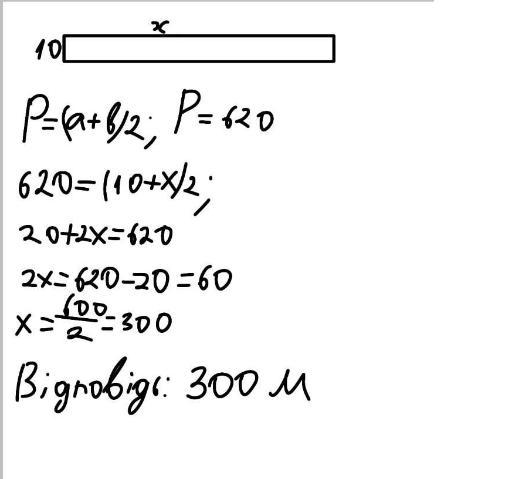 x
10
P=(a+b)2; P=620
620=(10+x)2;
20+2x=620
2x=620-20=60
x=600/2=300
Відповідь: 300 м